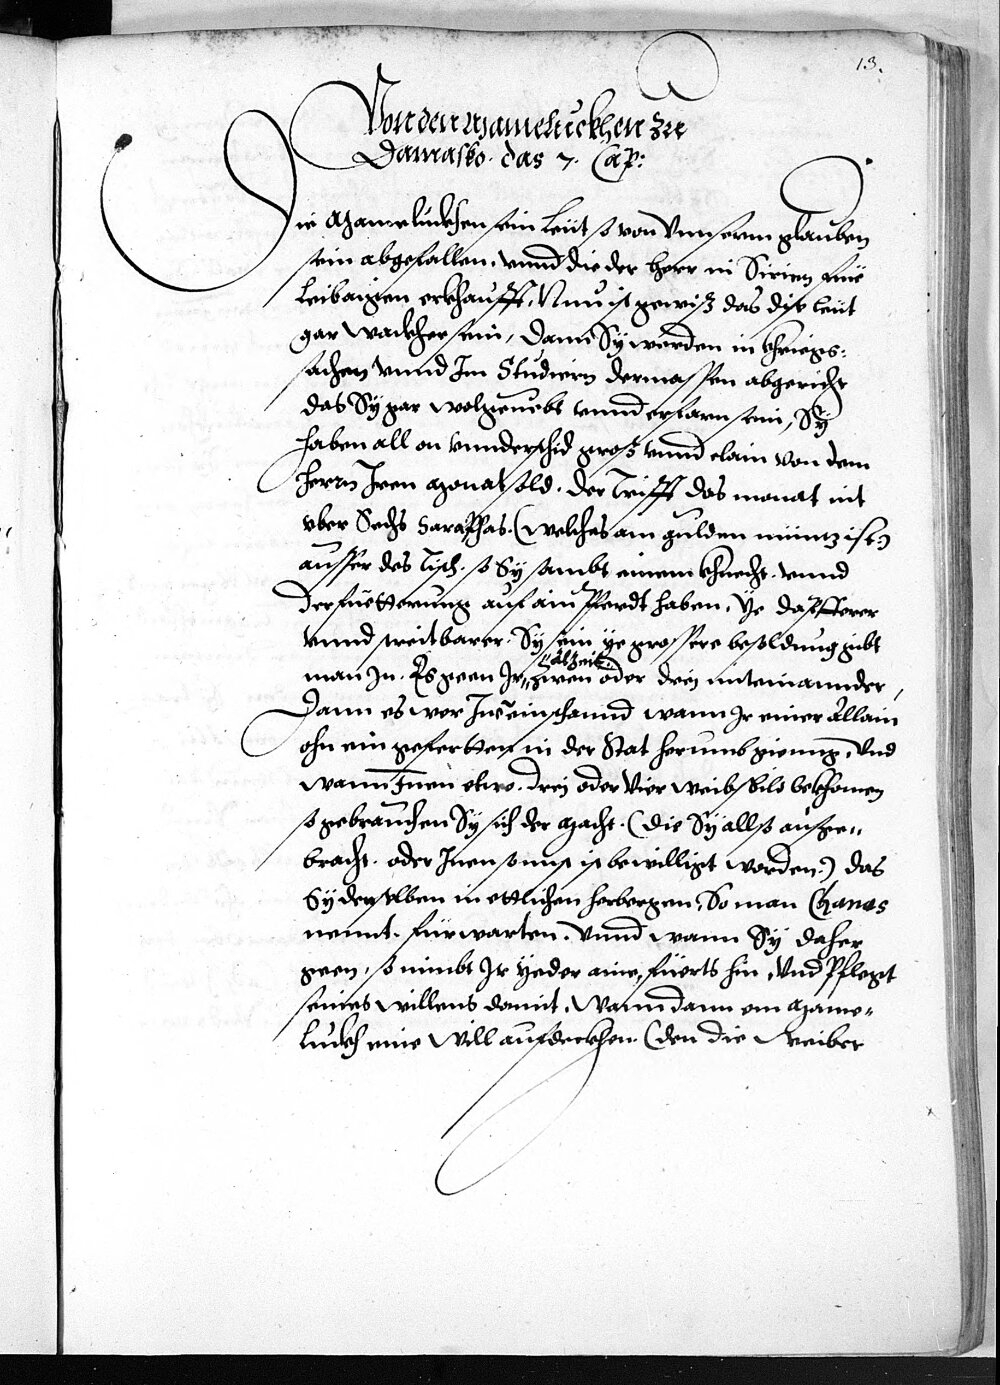 13.
Von den Mameluckhen zu
Damasko. das 7. Cap:
Die Mameluckhen sein Leüt so von Vnnserm glauben
sein abgefallen, vnnd die der herr in Sirien für
Leibaigen erkhaufft, Nun ist gewiß das dise leüt
gar wackher sein, dann Sy werden in khriegs-
sachen vnnd Im Studiern dermassen abgericht
das Sy gar wolgeuebt vnnd erfarn sein, Sy
haben all on vnnderschid groß vnnd clain von dem
herrn Iren Monat sold. der trifft das monat nit
vber Sechs Saraphas. (welches am gulden müntz ist)
ausser des Tisch. so Sy sambt einem khnecht. vnnd
der fuetterung auf ain Pferdt haben. Ye dapfferer
vnnd streitbarer. Sy sein ye grossere besoldung gibt
man In. Es geen Ir
alzeit
zwen oder drey miteinannder,
Dann es wer Inen ein schannd wann Ir einer allain
ohn ein geferten in der Stat herumb gienng, Vnd
wann Inen etwo. drey oder Vier weibsbild bekhomen
so gebrauchen Sy sich der Macht. (die Sy allso aufge-
bracht. oder Inen sonnst ist bewilligt worden:) das
Sy denselben in ettlichen herbergen, So man Chanas
nennt. fürwarten. Vnnd wann Sy daher
geen, so nimbt Ir Yeder aine, füerts hin, Vnd Pflegt
seines willens damit. Wann dann ein Mame-
luckh eine will aufdeckhen. (den die Weiber